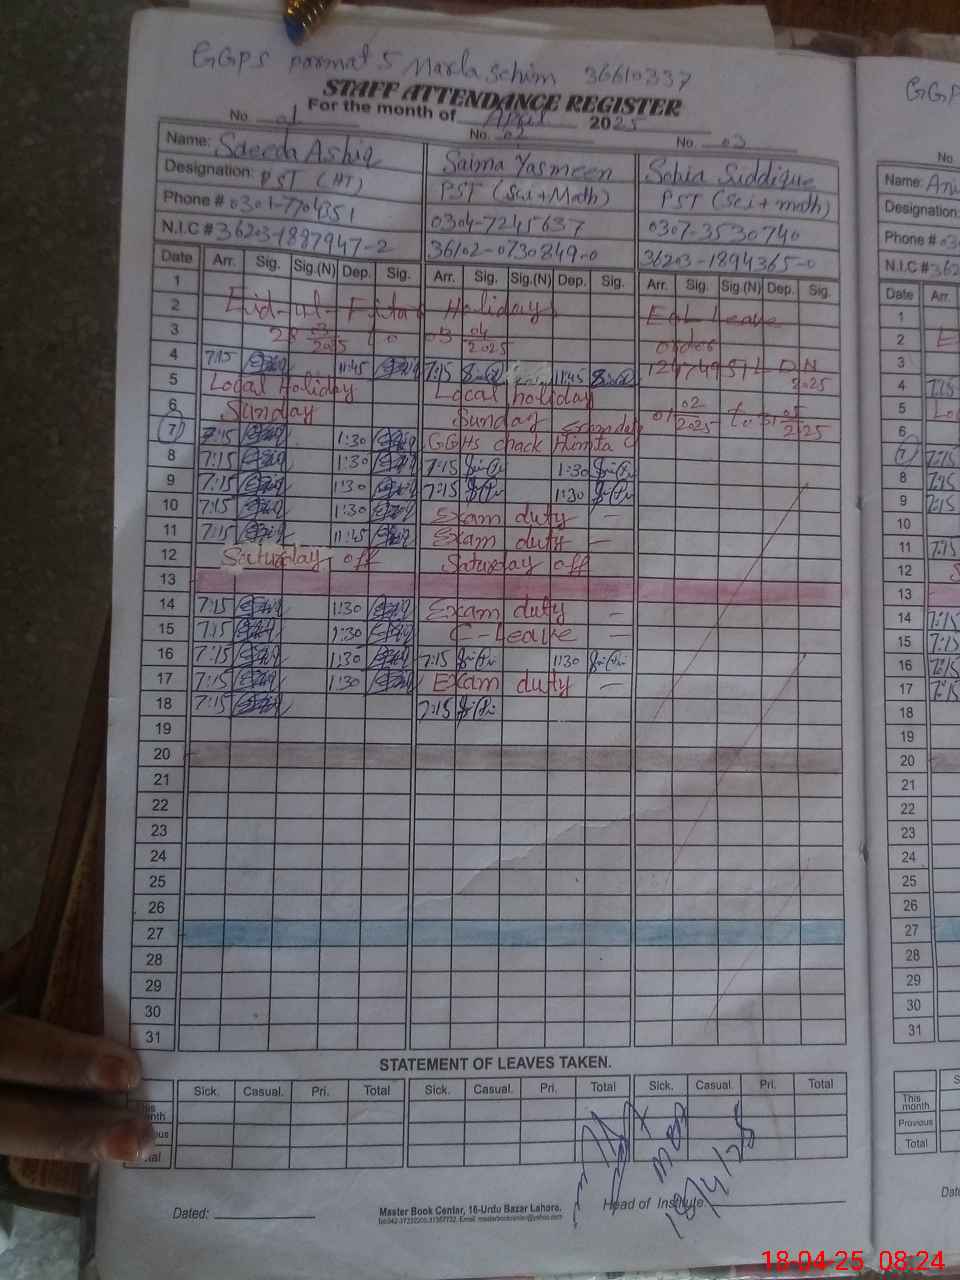 GGPS Parmat 5 Marla Schim 36610337
STAFF ATTENDANCE REGISTER
For the month of April 2025
No. 01 No. 02 No. 03
Name: Saeeda Ashiq Saima Yasmeen Sobia Siddique
Designation: PST (HT) PST (Sci+Math) PST (Sci+math)
Phone # 0304-7245637 0307-3530740
N.I.C # 36203-1887947-2 36102-0730849-0 36203-1894365-0
Date Arr. Sig. Sig.(N) Dep. Sig. Arr. Sig. Sig.(N) Dep. Sig. Arr. Sig. Sig.(N) Dep. Sig.
1
2 Eid-ul-Fitar Holiday Leave
3 28 03/2025 to 03 04/2025 Order
4 7:15 11:45 7:15 11:45 2025
5 Local Holiday Local holiday
6 Sunday Sunday 01 02/2025 to
7 7:15 1:30 GGHS chack Himta
8 7:15 1:30 7:15 1:30
9 7:15 1:30 7:15 1:30
10 7:15 1:30 Exam duty —
11 7:15 11:45 Exam duty —
12 Saturday off Saturday off
13
14 7:15 1:30 Exam duty —
15 7:15 1:30 C-Leave —
16 7:15 1:30 7:15 1:30
17 7:15 1:30 Exam duty —
18 7:15 7:15
19
20
21
22
23
24
25
26
27
28
29
30
31
STATEMENT OF LEAVES TAKEN.
Sick. Casual. Pri. Total Sick. Casual. Pri. Total Sick. Casual. Pri. Total
This month
18/4/25
Dated: Head of Institute
Master Book Center, 16-Urdu Bazar Lahore.
GGP
No
Name:
Designation:
Phone # 03
N.I.C # 362
Date Arr.
1
2
3
4 7:15
5
6
7 7:15
8 7:15
9 7:15
10
11 7:15
12
13
14 7:15
15 7:15
16 7:15
17 7:15
18
19
20
21
22
23
24
25
26
27
28
29
30
31
This month
Previous
Total
18-04-25 08:24